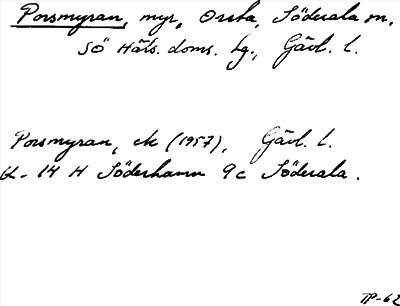 Porsmyran, myr, Orsta, Söderala sn,
SÖ Häls. doms. hg., Gävl. l.
Porsmyran, ek (1957), Gävl. l.
14 H Söderhamn 9c Söderala.
TP-62